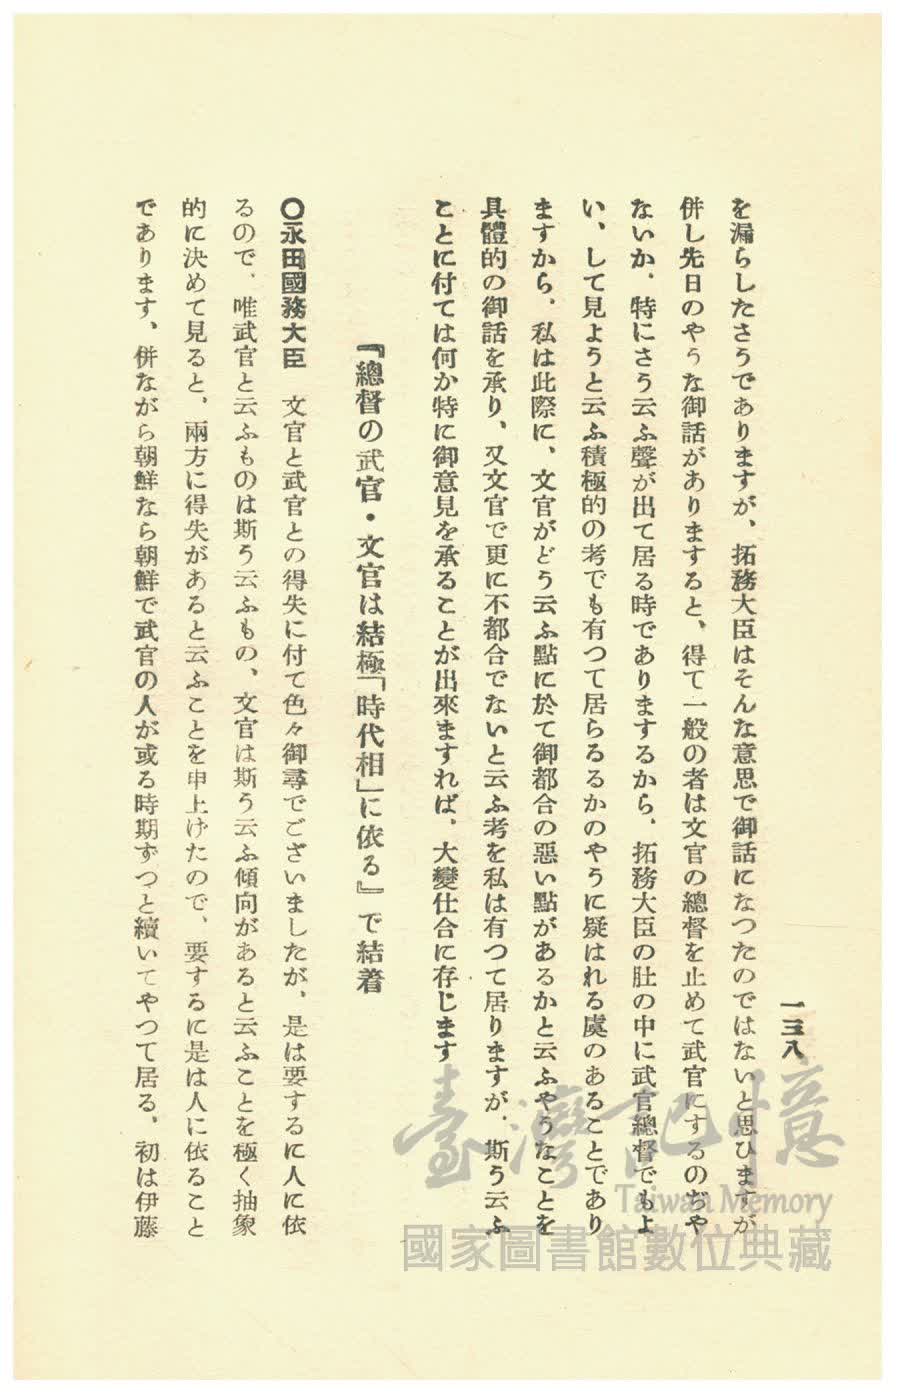 一三八
を漏らしたさうでありますが、拓務大臣はそんな意思で御話になつたのではないと思ひますが
併し先日のやうな御話がありますると、得て一般の者は文官の總督を止めて武官にするのぢや
ないか、特にさう云ふ聲が出て居る時でありまするから、拓務大臣の肚の中に武官總督でもよ
い、して見ようと云ふ積極的の考でも有つて居らるるかのやうに疑はれる虞のあることであり
ますから、私は此際に、文官がどう云ふ點に於て御都合の惡い點があるかと云ふやうなことを
具體的の御話を承り、又文官で更に不都合でないと云ふ考を私は有つて居りますが、斯う云ふ
ことに付ては何か特に御意見を承ることが出來ますれば、大變仕合に存じます
『總督の武官・文官は結極「時代相」に依る』で結着
〇永田國務大臣　文官と武官との得失に付て色々御尋でございましたが、是は要するに人に依
るので、唯武官と云ふものは斯う云ふもの、文官は斯う云ふ傾向があると云ふことを極く抽象
的に決めて見ると、兩方に得失があると云ふことを申上げたので、要するに是は人に依ること
であります、併ながら朝鮮なら朝鮮で武官の人が或る時期ずつと續いてやつて居る、初は伊藤
臺灣記憶
Taiwan Memory
國家圖書館數位典藏